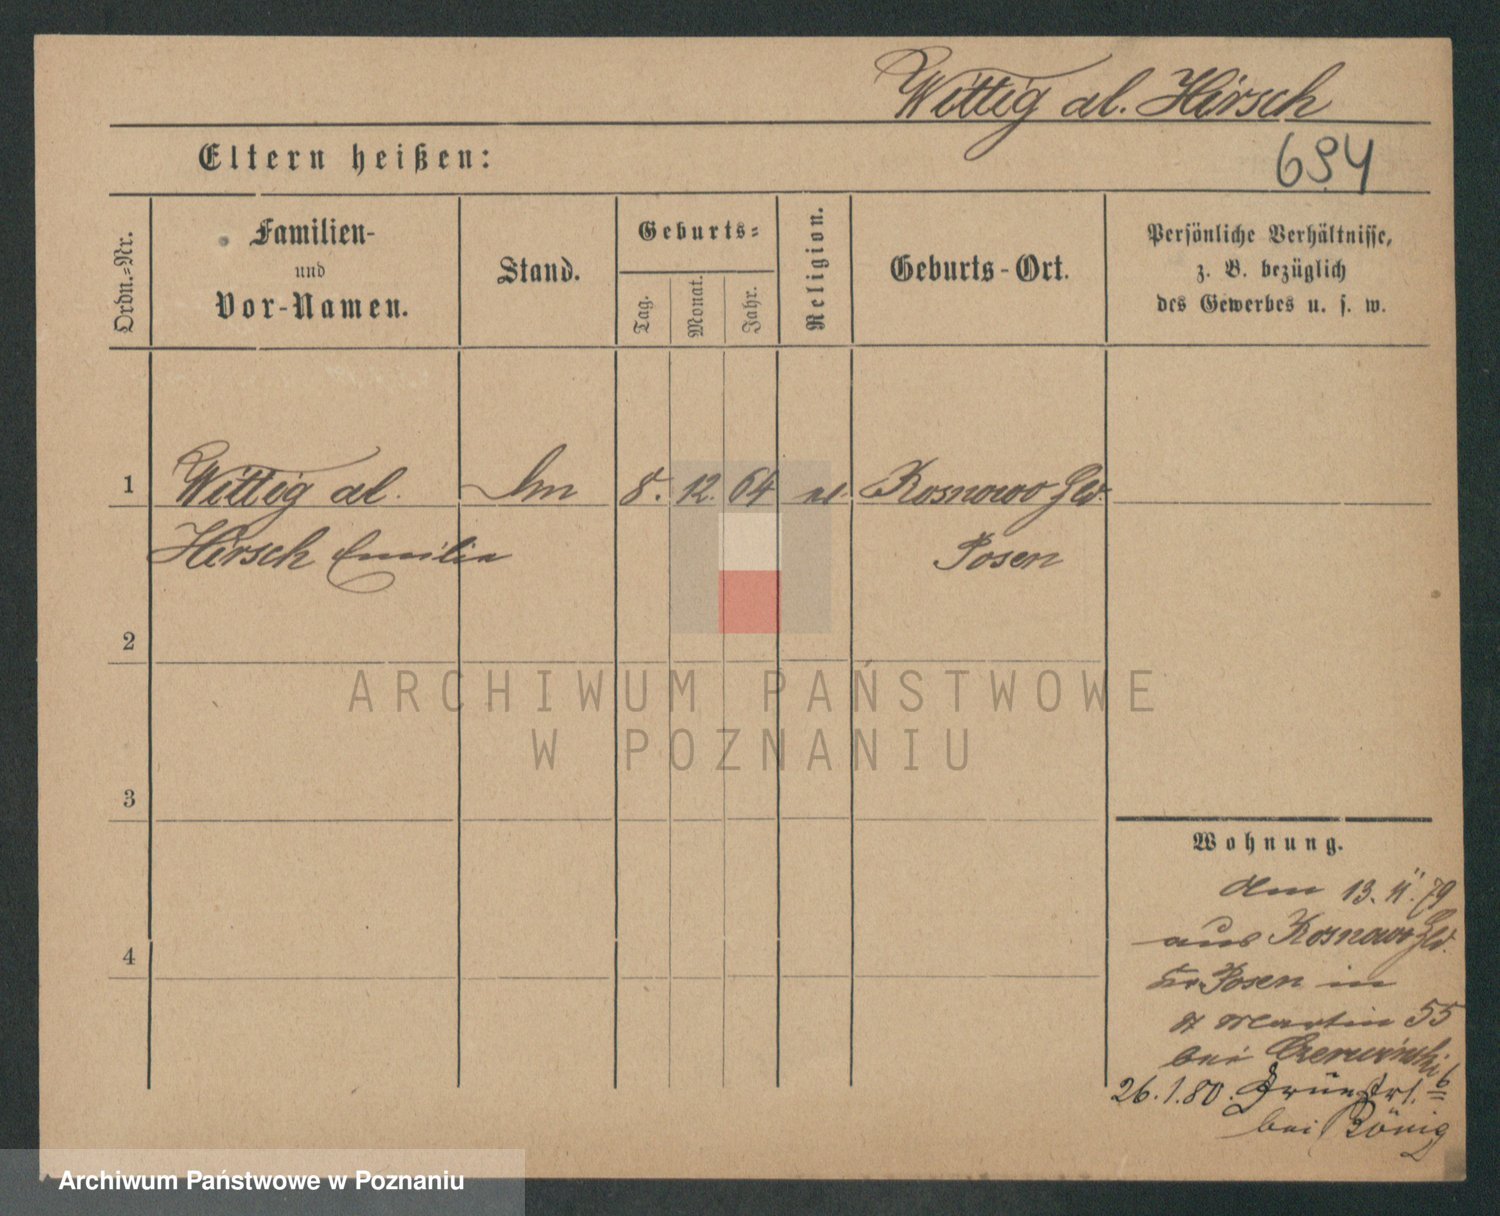 Wittig al. Hirsch
Eltern heißen:
694
Ordn.=Nr.
Familien-
und
Vor-Namen.
Stand.
Geburts=
Tag.
Monat.
Jahr.
Religion.
Geburts-Ort.
Persönliche Verhältnisse,
z. B. bezüglich
des Gewerbes u. s. w.
1
Wittig al.
8. 12. 64
Rosnowo Hld.
Hirsch Emilie
Posen
2
ARCHIWUM PAŃSTWOWE
W POZNANIU
3
4
Wohnung.
den 13. 11. 79
aus Rosnowo Hld.
Kr. Posen in
St Martin 55
bei Czerwinski
26.1.80. Grünstr. 6
bei König
Archiwum Państwowe w Poznaniu